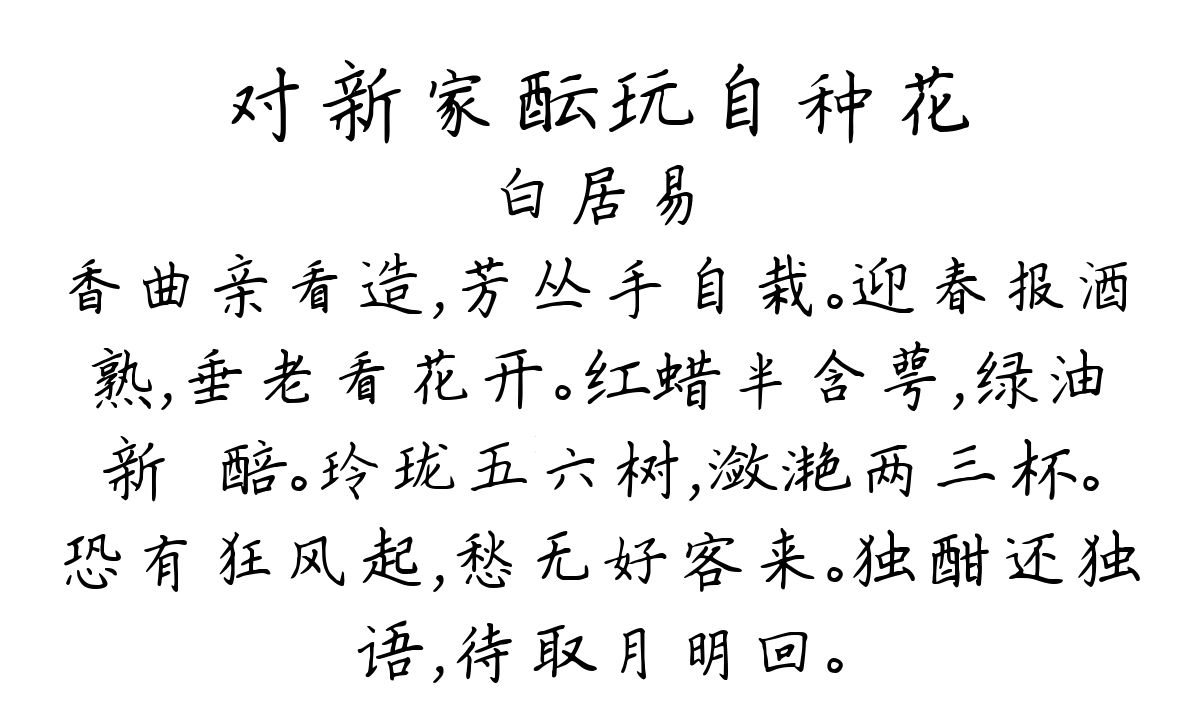 对新家酝玩自种花
白居易
香曲亲看造,芳丛手自栽。迎春报酒
熟,垂老看花开。红蜡半含萼,绿油
新 醅。玲珑五六树,潋滟两三杯。
恐有狂风起,愁无好客来。独酣还独
语,待取月明回。